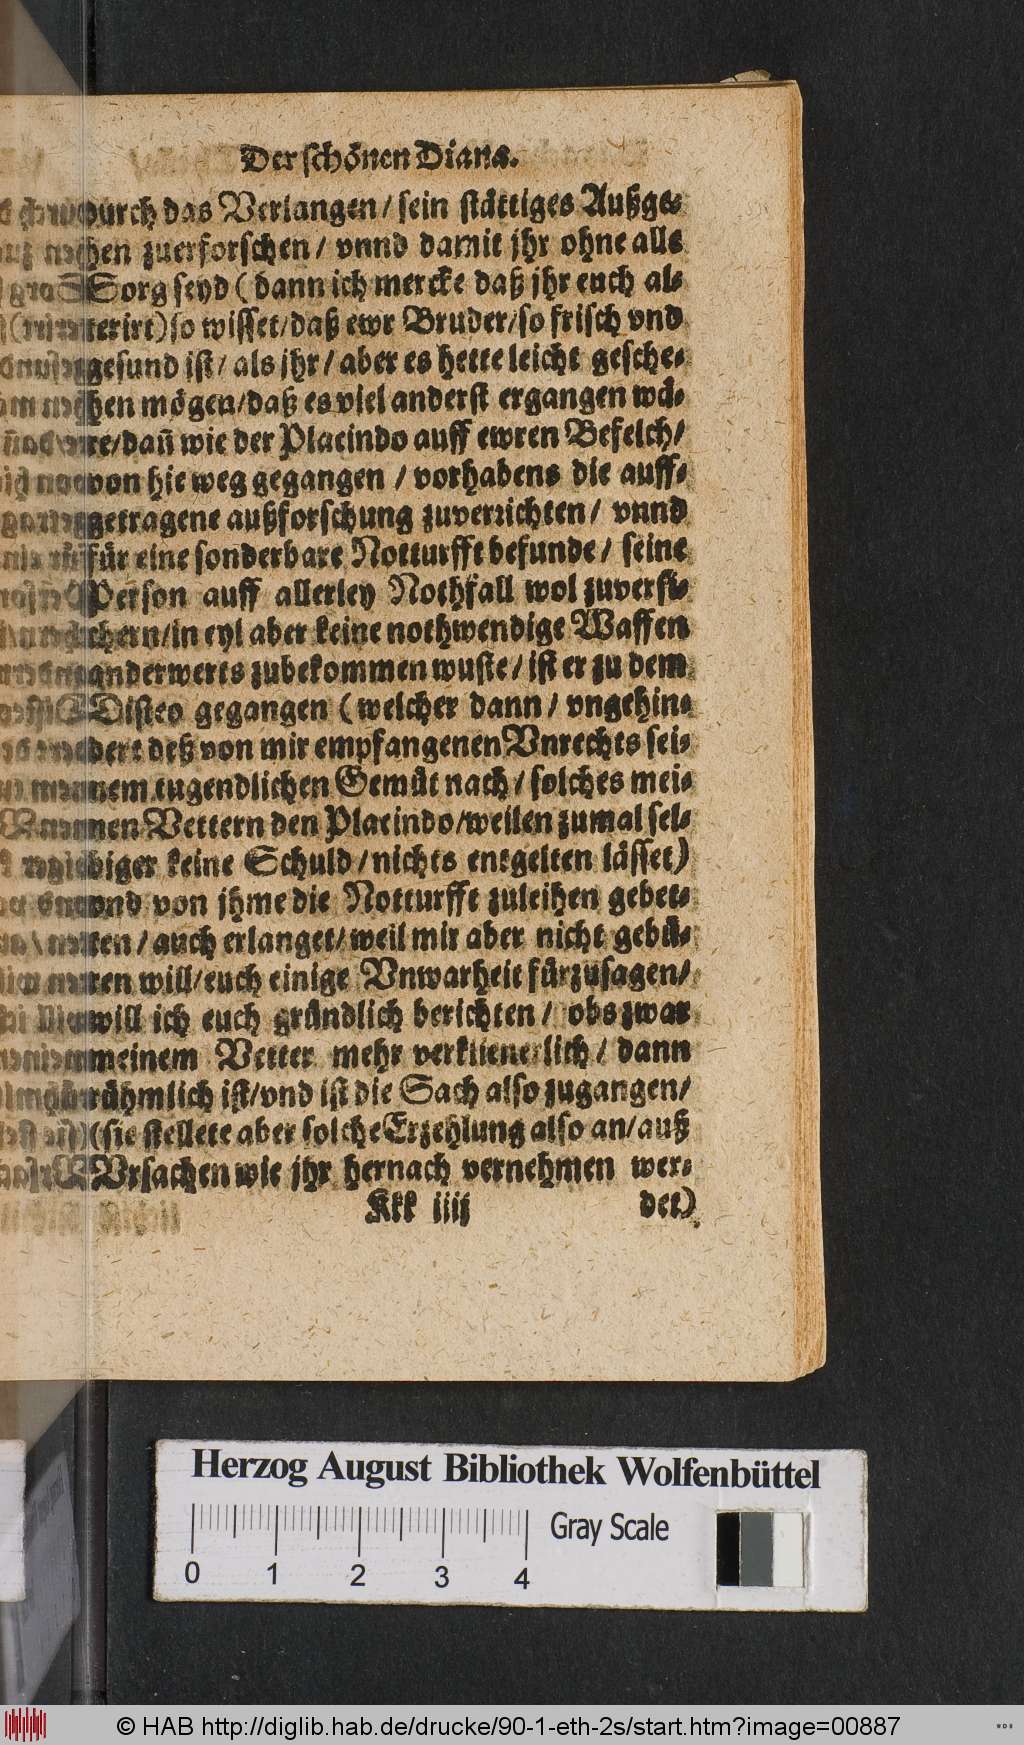 Der schönen Diana.
durch das Verlangen / sein stättiges Außge-
hen zuerforschen / vnnd damit jhr ohne alle
Sorg seyd ( dann ich mercke daß jhr euch al-
terirt) so wisset / daß ewr Bruder / so frisch vnd
gesund ist / als jhr / aber es hette leicht gesche-
hen mögen / daß es viel anderst ergangen wä-
re / dañ wie der Placindo auff ewren Befelch /
von hie weg gegangen / vorhabens die auff-
getragene außforschung zuverrichten / vnnd
für eine sonderbare Notturfft befunde / seine
Person auff allerley Nothfall wol zuversi-
chern / in eyl aber keine nothwendige Waffen
anderwerts zubekommen wuste / ist er zu dem
Disteo gegangen ( welcher dann / vngehin-
dert deß von mir empfangenen Vnrechts sei-
nem tugendlichen Gemüt nach / solches mei-
nen Vettern den Placindo / weilen zumal sel-
biger keine Schuld / nichts entgelten lässet)
vnd von jhme die Notturfft zuleihen gebet-
ten / auch erlanget / weil mir aber nicht gebü-
ren will / euch einige Vnwarheit fürzusagen /
will ich euch gründlich berichten / obs zwar
meinem Vetter mehr verklienerlich / dann
rühmlich ist / vnd ist die Sach also zugangen /
(sie stellete aber solche Erzehlung also an / auß
Vrsachen wie jhr hernach vernehmen wer-
Kkk iiij det)
Herzog August Bibliothek Wolfenbüttel
Gray Scale
0 1 2 3 4
© HAB http://diglib.hab.de/drucke/90-1-eth-2s/start.htm?image=00887